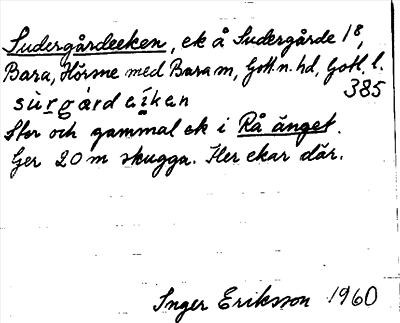 Sudergårdeeken, ek å Sudergårde 1 8,
Bara, Hörsne med Bara sn, Gotl. n. hd, Gotl. l.
385
sùrgárdaíkan
Stor och gammal ek i Rå änget.
Ger 20 m skugga. Fler ekar där.
Inger Eriksson 1960